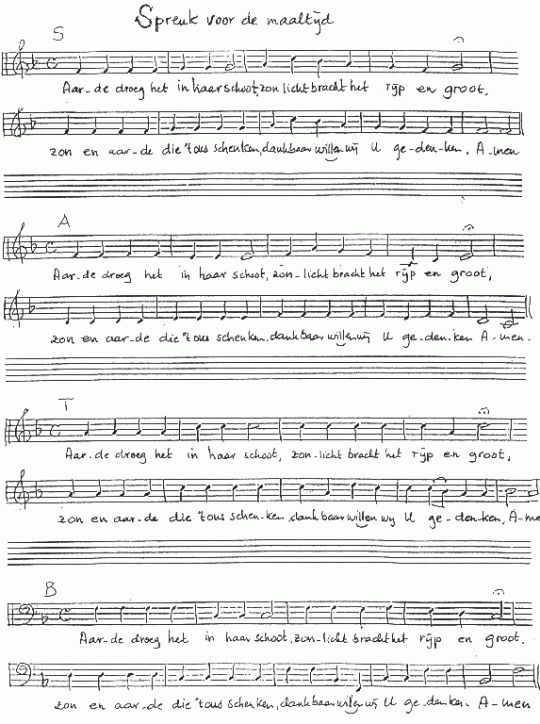 Spreuk voor de maaltijd
S
Aar-de droeg het in haar schoot, zon licht bracht het rijp en groot,
zon en aar-de die 't ons schenken, dankbaar willen wij U ge-den-ken. A-men
A
Aar-de droeg het in haar schoot, zon-licht bracht het rijp en groot,
zon en aar-de die 't ons schenken. dankbaar willen wij U ge-den-ken A-men-
T
Aar-de droeg het in haar schoot, zon-licht bracht het rijp en groot,
zon en aar-de die 't ons schen-ken, dankbaar willen wij U ge-den-ken, A-me
B
Aar-de droeg het in haar schoot, zon-licht bracht het rijp en groot.
zon en aar-de die 't ons schenken, dankbaar willen wij U ge-den-ken. A-men